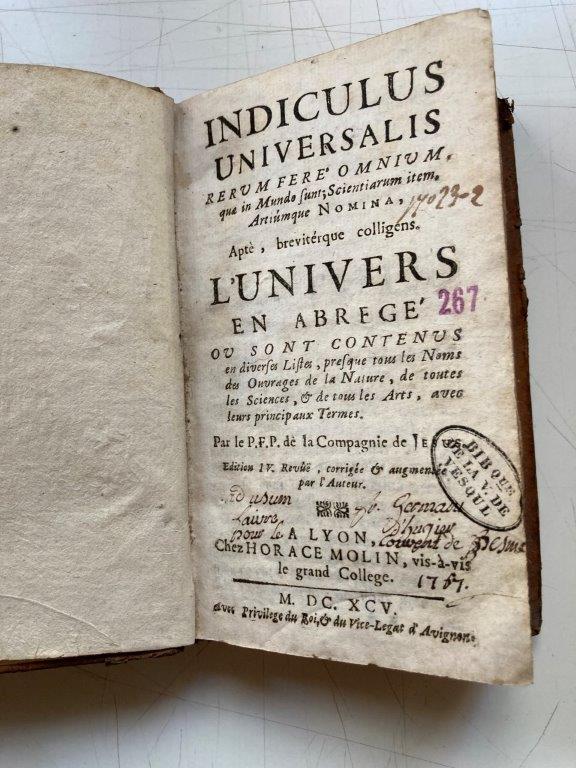 INDICULUS
UNIVERSALIS
RERUM FERE' OMNIUM,
quæ in Mundo sunt; Scientiarum item,
Artiúmque NOMINA,
17023-2
Aptè, brevitérque colligens.
L'UNIVERS
EN ABREGE'
267
OU SONT CONTENUS
en diverses Listes, presque tous les Noms
des Ouvrages de la Nature, de toutes
les Sciences, & de tous les Arts, avec
leurs principaux Termes.
Par le P.F.P. de la Compagnie de JESUS
BIBQUE
DE LA V. DE
VESOUL
Edition IV. Revûë, corrigée & augmentée
par l'Auteur.
ad usum fr. Germani
pour le couvent de
A LYON,
Chez HORACE MOLIN, vis-à-vis
le grand College. 1757.
M. DC. XCV.
Avec Privilege du Roi, & du Vice-Legat d'Avignon.